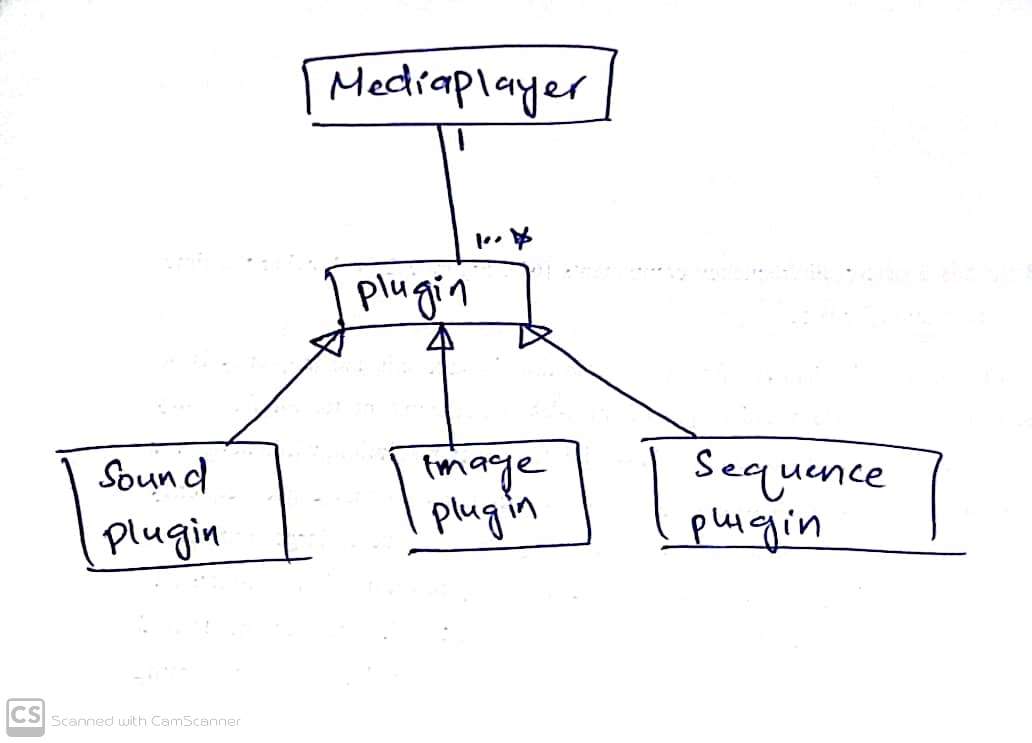 Mediaplayer
1
1..*
plugin
Sound
plugin
Image
plugin
Sequence
plugin
CS Scanned with CamScanner